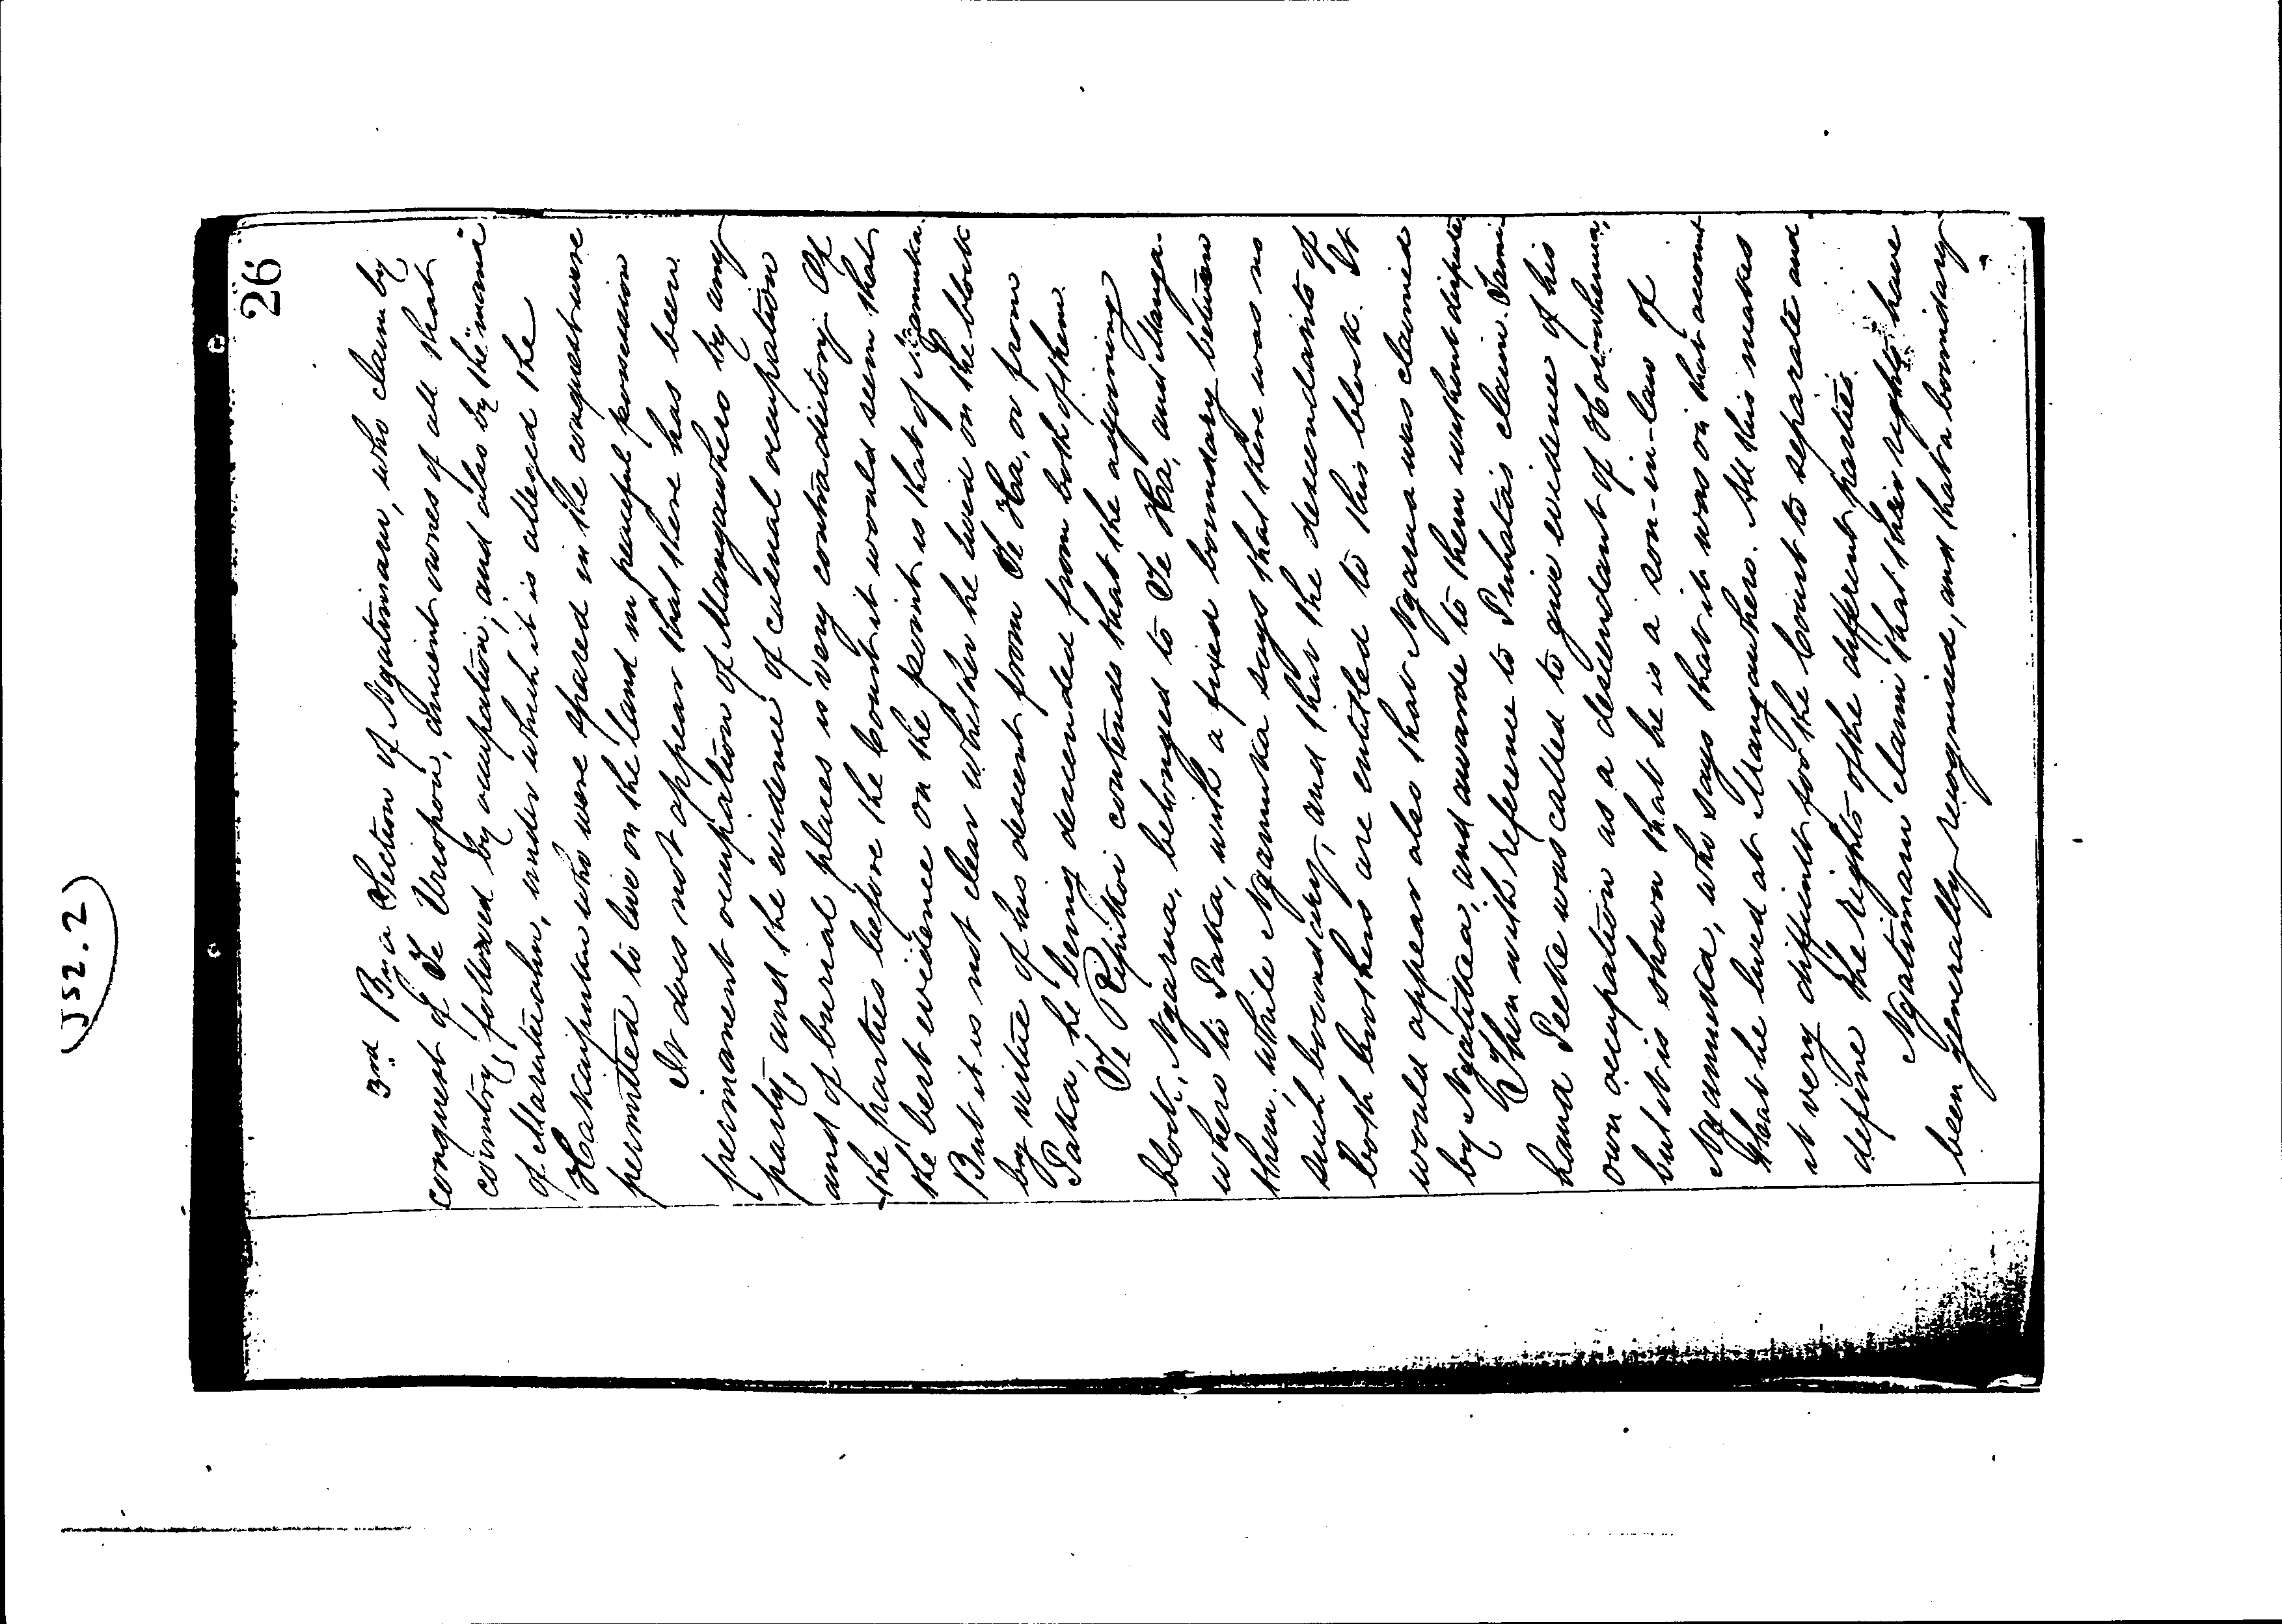 (J52.2)
26
3rd By a Section of Ngatimaru, who claim by
conquest of Te Uruopou, ancient owners of all that
country, followed by occupation; and also by the "mana"
of Marutuahu, under which it is alleged the
who were spared in the conquest were
permitted to live on the land in peaceful possession
It does not appear that there has been
permanent occupation of Mangawhero by any
party, and the evidence of casual occupation
and of burial places is very contradictory. Of
the parties before the Court it would seem that
the best evidence on the point is that of Ngamuka.
But it is not clear whether he lived on the block
by virtue of his descent from Te Ha, or from
Paka, he being descended from both of them.
Te contends that the adjoining
block, Ngarua, belonged to Te Ha, and Manga-
whero to Paka, with a fixed boundary between
them; while Ngamuka says that there was no
such boundary, and that the descendants of
both brothers are entitled to this block. It
would appear also that Ngarua was claimed
by Ngatitea, and awarded to them without dispute.
Then with reference to claim.
hana Peeke was called to give evidence of his
own occupation as a descendant of
but it is shown that he is a son-in-law of
Ngamuka, who says that it was on that account
that he lived at Mangawhero. All this makes
it very difficult for the Court to separate and
define the rights of the different parties.
Ngatimaru claim that their rights have
been generally recognised, and that a boundary